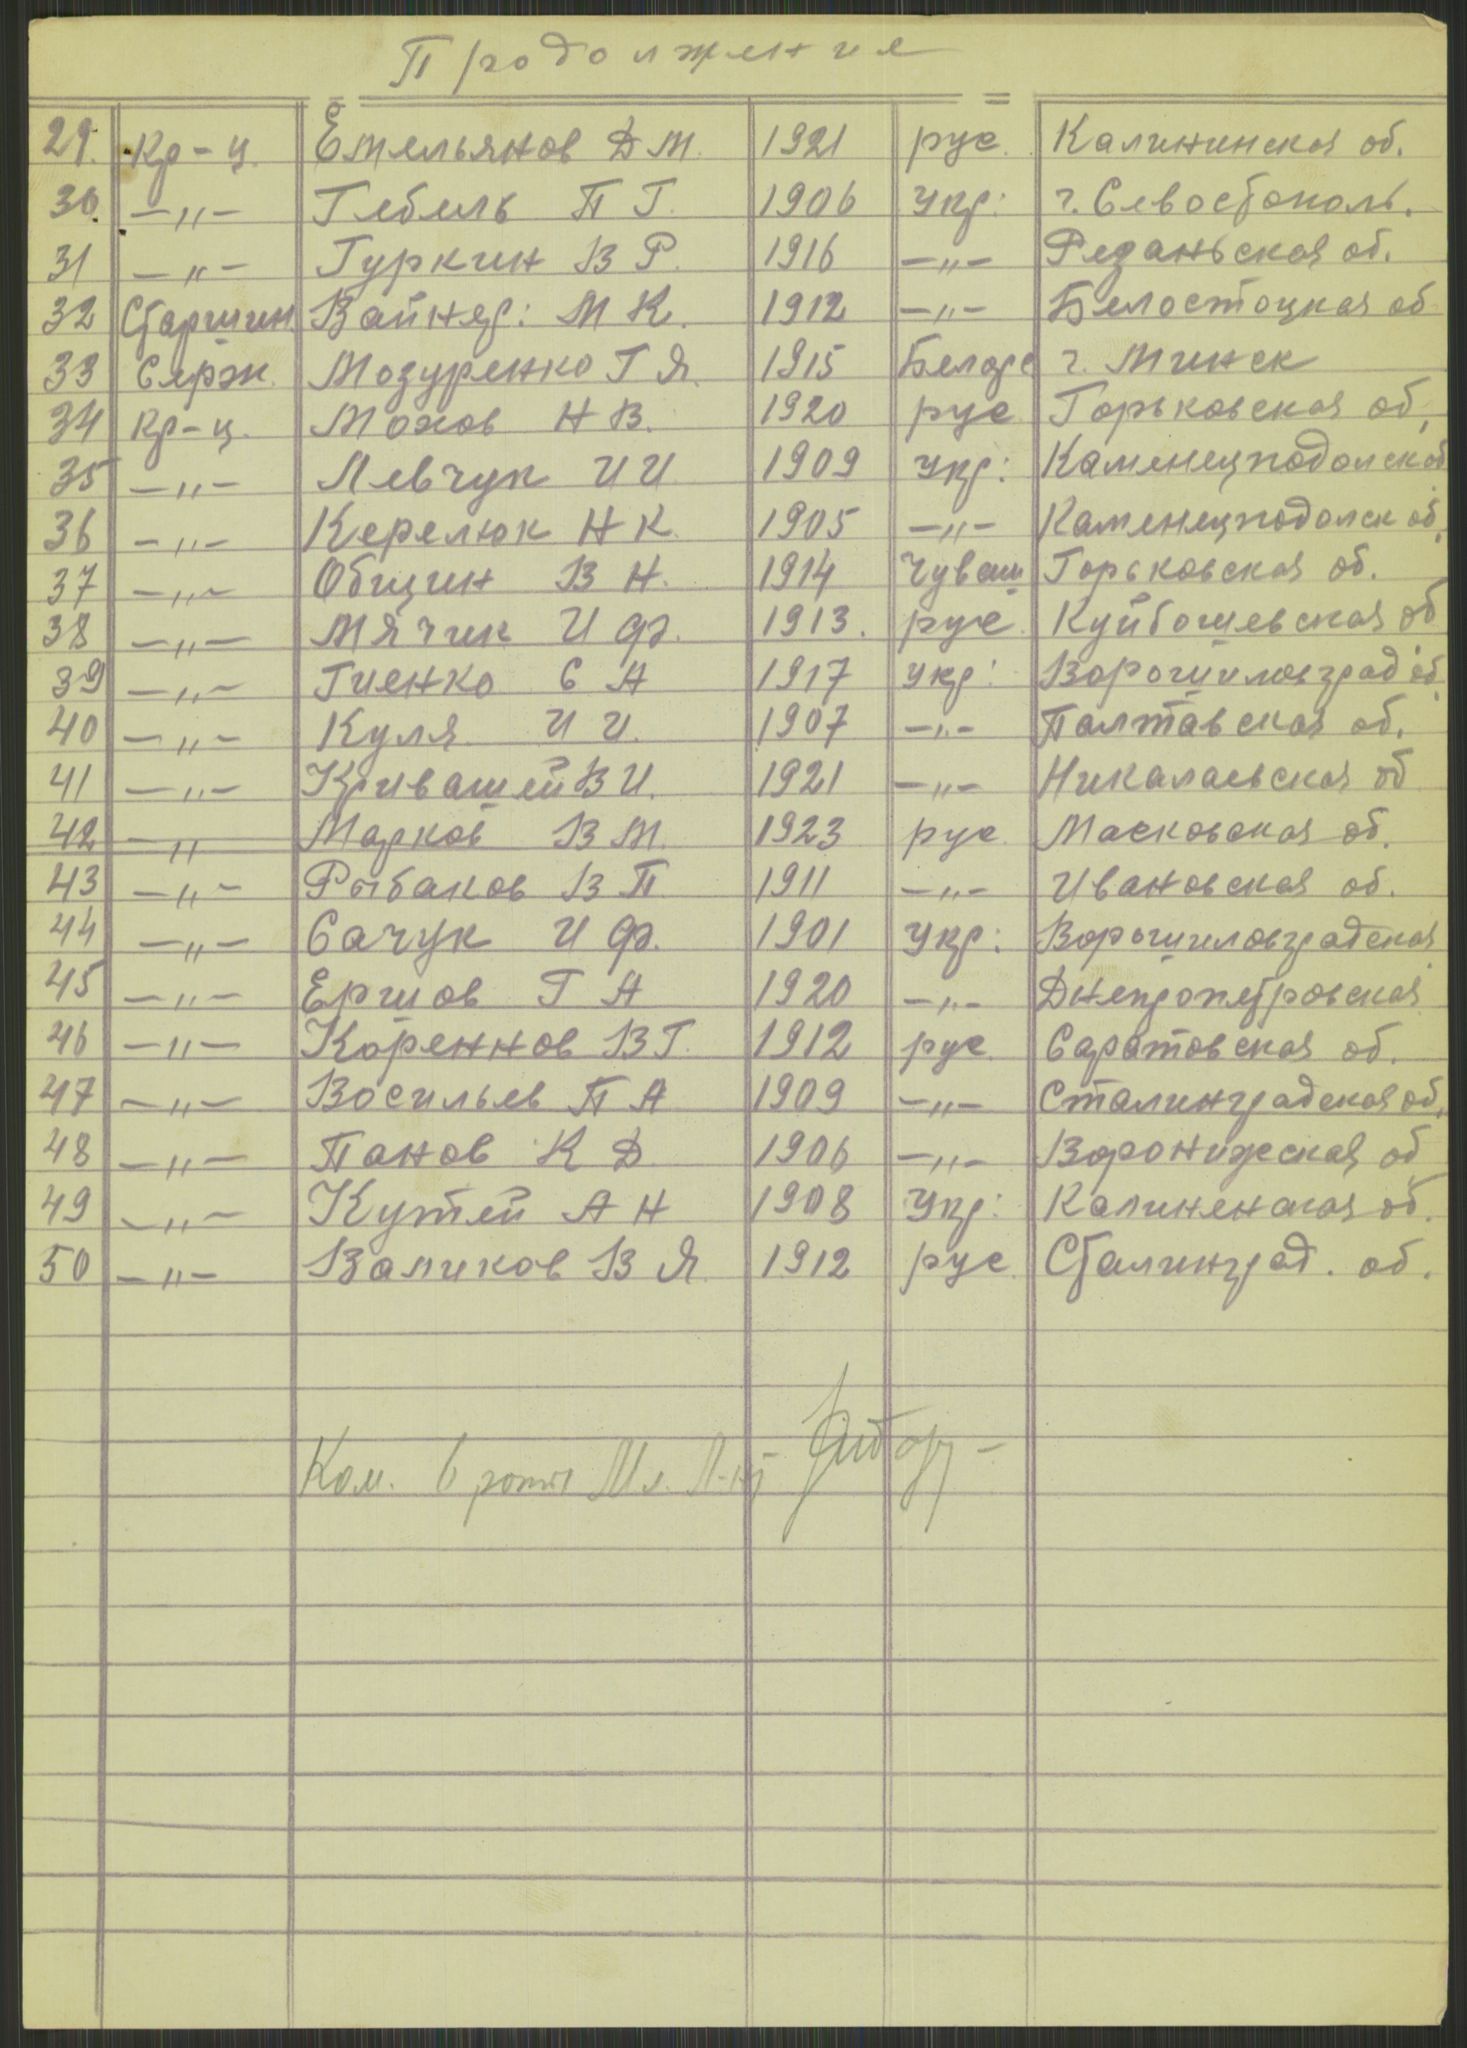 Продолжения
29. Кр-ц. Емельянов Д М. 1921 рус. Калининская об.
30. —„— Гебель П Г. 1906 Укр: г. Севостополь.
31 —„— Гуркин В Р. 1916 —„— Резаньская об.
32 Старшин Вайнер: М К. 1912 —„— Белостоцкая об
33 Серж. Мозуренко Г Я. 1915 Белорс г. Минск
34 Кр-ц. Мохов Н В. 1920 рус Горьковская об.
35 —„— Левчук И И 1909 Укр: Каменецподолск об
36 —„— Керелюк Н К. 1905 —„— Каменецподолск об.
37 —„— Общин В Н. 1914 Чуваш Горьковская об.
38 —„— Мячик И Ф. 1913. рус. Куйбошевская об
39 —„— Гиенко С А 1917 Укр: Ворошиловград об.
40 —„— Куля И И. 1907 —„— Палтавская об.
41 —„— Кривашей В И. 1921 —„— Никалаевская об
42 —„ Марков В М. 1923 рус. Масковская об.
43 —„— Рыбаков В П. 1911 —„— Ивановская об.
44 —„— Сачук И Ф. 1901 Укр: Ворошиловградская
45 —„— Ершов Г А 1920 —„— Днепропетровская
46 —„— Кореннов В Г. 1912 рус. Саратовская об.
47 —„— Восильев П А 1909 —„— Сталинградская об.
48 —„— Панов К Д 1906 —„— Воронижеская об
49 —„— Кутей А Н 1908 Укр: Калиненская об.
50 —„— Валиков В Я. 1912 рус. Сталинград. об.
Ком. 6 роты Мл. Л-нт